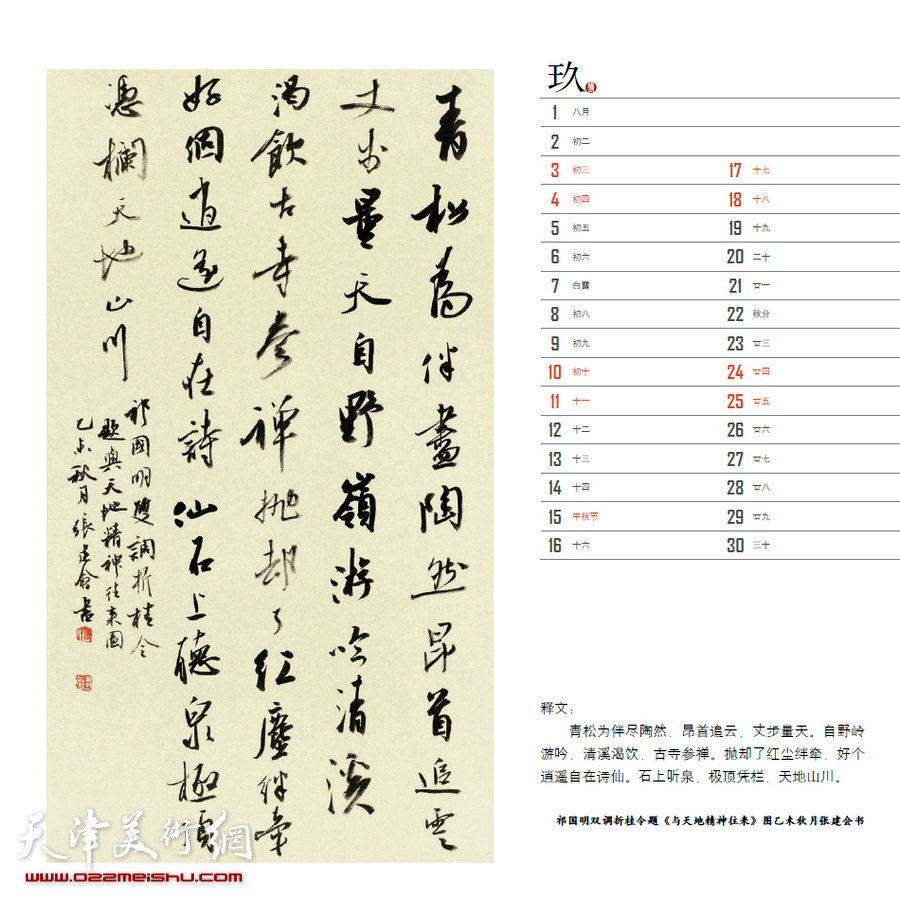 青松為伴盡陶然昂首追雲
丈步量天自野嶺游吟清溪
渴飲古寺參禪抛却了紅塵絆牽
好個逍遥自在詩仙石上聽泉極頂
憑欄天地山川
祁國明雙調折桂令
題與天地精神往来圖
乙未秋月張建會書
玖
1 八月
2 初二
3 初三
4 初四
5 初五
6 初六
7 白露
8 初八
9 初九
10 初十
11 十一
12 十二
13 十三
14 十四
15 中秋节
16 十六
17 十七
18 十八
19 十九
20 二十
21 廿一
22 秋分
23 廿三
24 廿四
25 廿五
26 廿六
27 廿七
28 廿八
29 廿九
30 三十
释文：
青松为伴尽陶然、昂首追云、丈步量天。自野岭
游吟、清溪渴饮、古寺参禅。抛却了红尘绊牵、好个
逍遥自在诗仙。石上听泉、极顶凭栏、天地山川。
祁国明双调折桂令题《与天地精神往来》图乙未秋月张建会书
天津美術網
www.022meishu.com